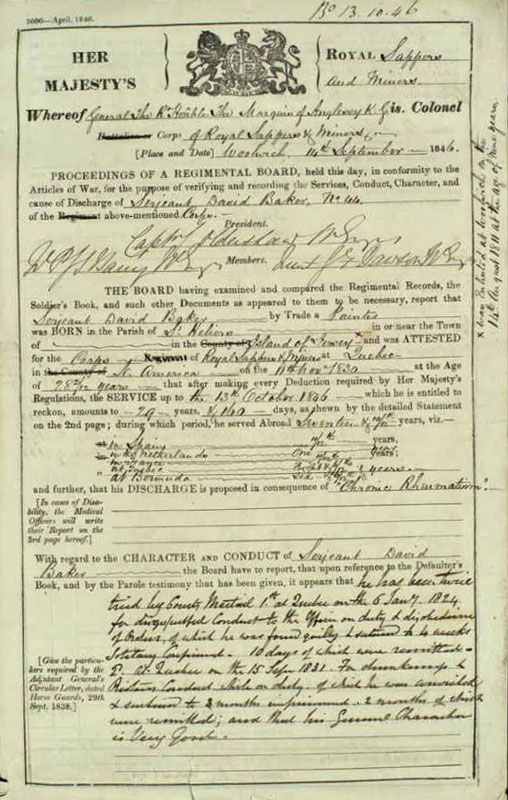 3000—April, 1846.
Bo 13.10.46
HER MAJESTY'S
ROYAL Sappers and Miners.
Whereof General The Rt Honble The Marquis of Anglesey K.G. is Colonel
Battalion or Corps of Royal Sappers & Miners
[Place and Date] Woolwich, 14th September 1846.
PROCEEDINGS OF A REGIMENTAL BOARD, held this day, in conformity to the
Articles of War, for the purpose of verifying and recording the Services, Conduct, Character, and
cause of Discharge of Serjeant David Baker, No 44.
of the Regiment above-mentioned Corps.
President.
Captn
Members.
THE BOARD having examined and compared the Regimental Records, the
Soldier's Book, and such other Documents as appeared to them to be necessary, report that
Serjeant David Baker by Trade a Painter
was BORN in the Parish of St Heliers in or near the Town
of in the County of Island of Jersey and was ATTESTED
for the Corps Regiment of Royal Sappers & Miners at Quebec
in the County of Nt America on the 11th Novr 1830 at the Age
of 28 years that after making every Deduction required by Her Majesty's
Regulations, the SERVICE up to the 13th October 1846 which he is entitled to
reckon, amounts to 29 years, & 160 days, as shewn by the detailed Statement
on the 2nd page; during which period, he served Abroad Seventeen & years, viz.—
in Spain years,
in the Netherlands One years.
in France
at Quebec years.
at Bermuda Six
and further, that his DISCHARGE is proposed in consequence of "Chronic Rheumatism".
[In cases of Disability, the Medical Officers will write their Report on the 3rd page hereof.]
With regard to the CHARACTER AND CONDUCT of Serjeant David
Baker the Board have to report, that upon reference to the Defaulter's
Book, and by the Parole testimony that has been given, it appears that he has been twice
tried by Courts Martial 1st at Quebec on the 6 Jany 1824
for disrespectful Conduct to the Officer on duty & disobedience
of Orders, of which he was found guilty & sentenced to 4 weeks
Solitary Confinement. 10 days of which were remitted.
[Give the particulars required by the Adjutant General's Circular Letter, dated Horse Guards, 29th Sept. 1838.]
2d at Quebec on the 15 Sepr 1831. For drunkenness &
Riotous Conduct while on duty, of which he was convicted
& sentenced to 3 months imprisonment. 2 months of which
were remitted; and that his General Character
is Very Good.
x was Enlisted at Woolwich on the
14th August 1811 at the age of nine years.